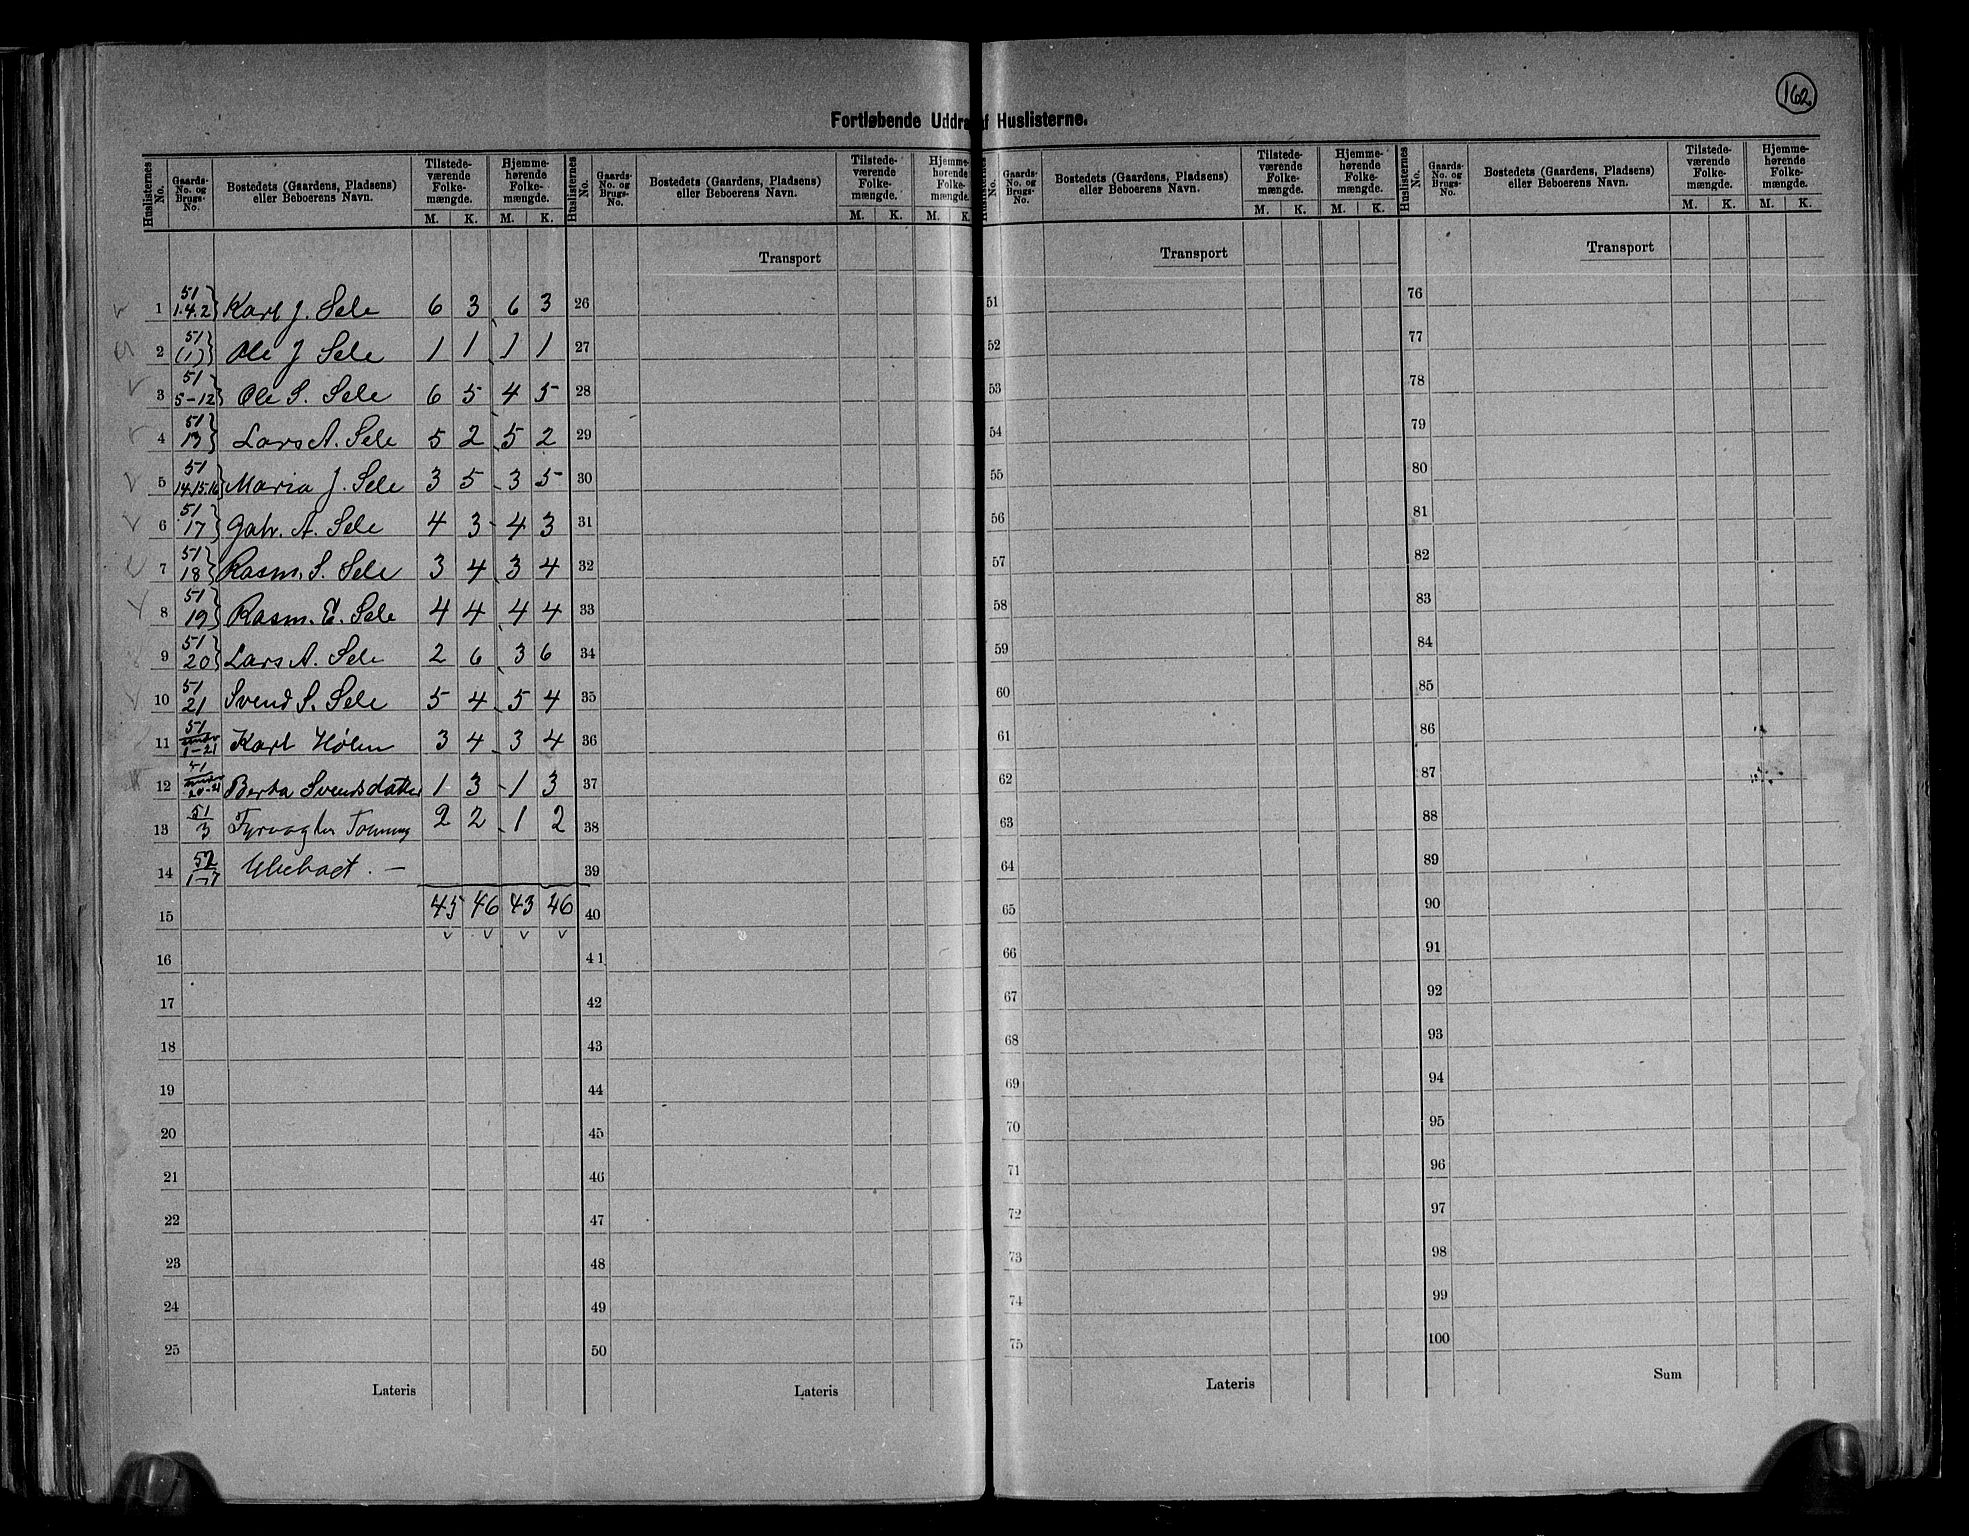 162
Fortløbende Uddra af Huslisterne.
Huslisternes No. Gaards-No. og Brugs-No. Bostedets (Gaardens, Pladsens) eller Beboerens Navn. Tilstedeværende Folkemængde. M. K. Hjemmehørende Folkemængde. M. K.
Huslisternes No. Gaards-No. og Brugs-No. Bostedets (Gaardens, Pladsens) eller Beboerens Navn. Tilstedeværende Folkemængde. M. K. Hjemmehørende Folkemængde. M. K.
Huslisternes No. Gaards-No. og Brugs-No. Bostedets (Gaardens, Pladsens) eller Beboerens Navn. Tilstedeværende Folkemængde. M. K. Hjemmehørende Folkemængde. M. K.
Huslisternes No. Gaards-No. og Brugs-No. Bostedets (Gaardens, Pladsens) eller Beboerens Navn. Tilstedeværende Folkemængde. M. K. Hjemmehørende Folkemængde. M. K.
Transport Transport Transport
1 51 1.4.2 Karl J. Sele 6 3 6 3 26 51 76
2 51 (1) Ole J Sele 1 1 1 1 27 52 77
3 51 5-12 Ole S. Sele 6 5 4 5 28 53 78
4 51 13 Lars A. Sele 5 2 5 2 29 54 79
5 51 14.15.16 Maria J. Sele 3 5 3 5 30 55 80
6 51 17 Gabr. A. Sele 4 3 4 3 31 56 81
7 51 18 Rasm. S. Sele 3 4 3 4 32 57 82
8 51 19 Rasm. E. Sele 4 4 4 4 33 58 83
9 51 20 Lars A. Sele 2 6 3 6 34 59 84
10 51 21 Svend S. Sele 5 4 5 4 35 60 85
11 51 1-21 Karl 3 4 3 4 36 61 86
12 51 20-21 Berta Svendsdatter 1 3 1 3 37 62 87
13 51 3 Fyrvogter 2 2 1 2 38 63 88
14 52 1-7 39 64 89
15 45 46 43 46 40 65 90
16 41 66 91
17 42 67 92
18 43 68 93
19 44 69 94
20 45 70 95
21 46 71 96
22 47 72 97
23 48 73 98
24 49 74 99
25 50 75 100
Lateris Lateris Lateris Sum